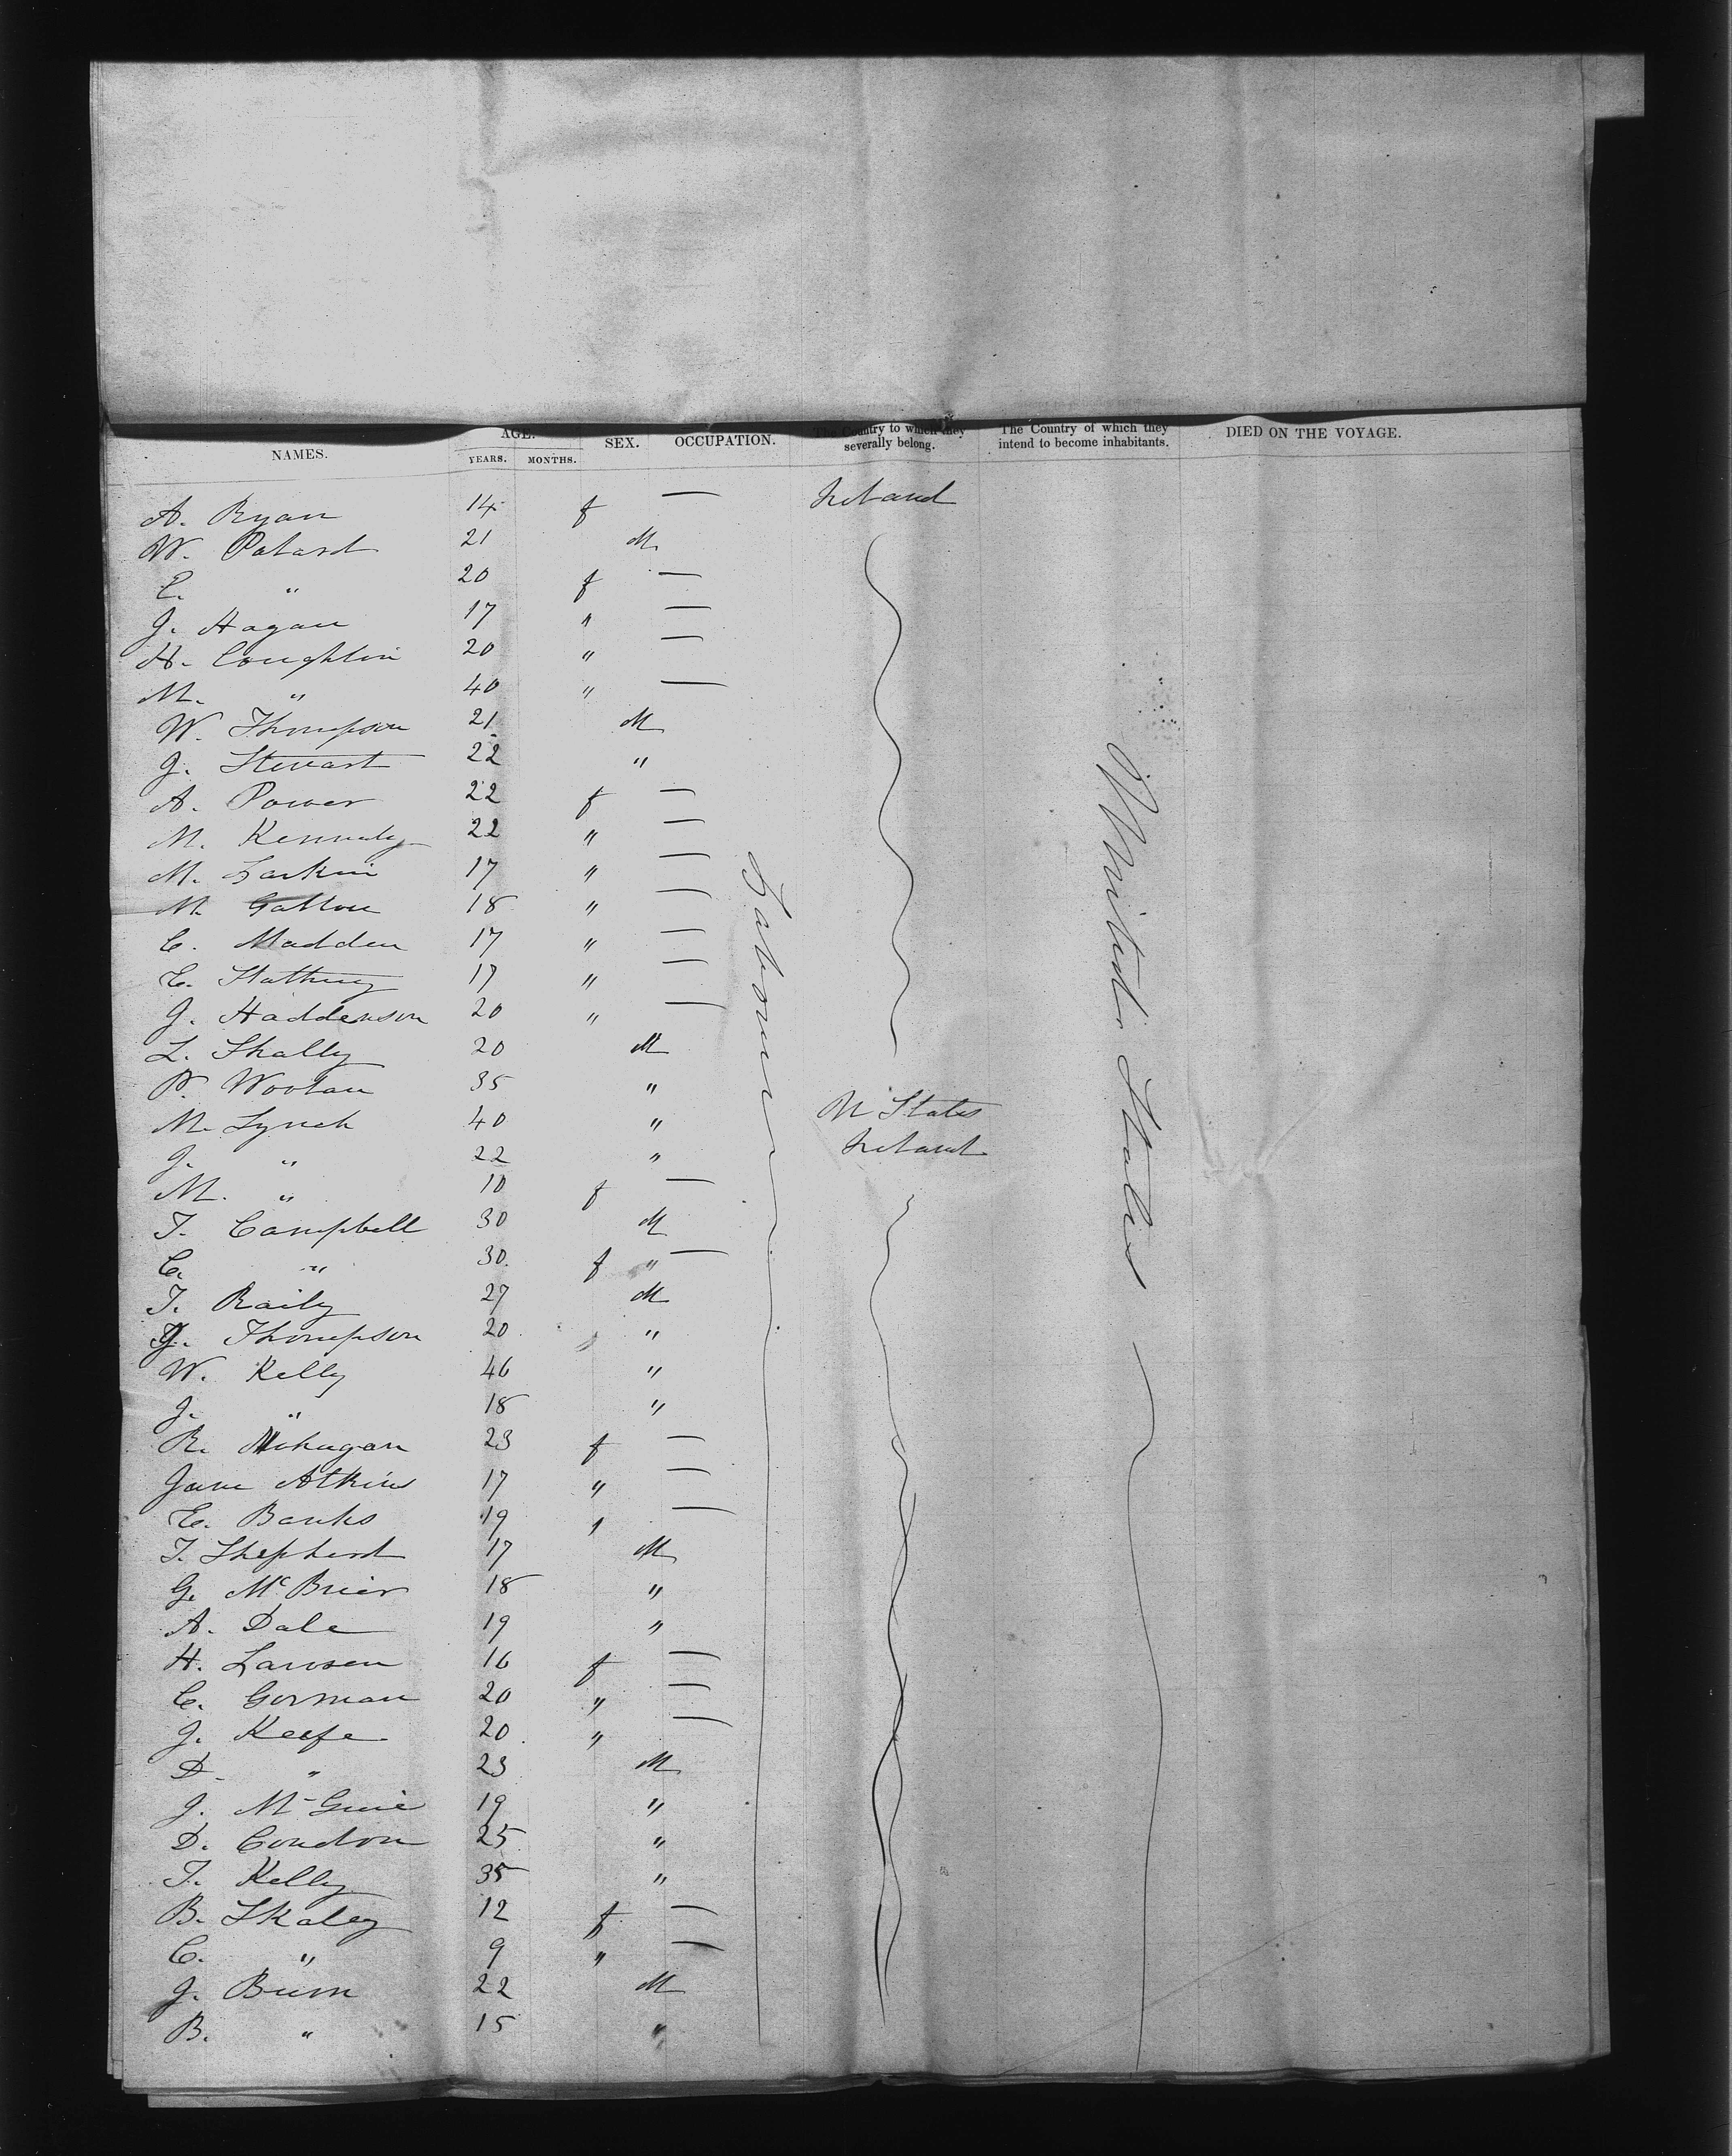 NAMES. AGE. SEX. OCCUPATION. The Country to which they severally belong. The Country of which they intend to become inhabitants. DIED ON THE VOYAGE.
YEARS. MONTHS.
A. Ryan 14 f — Ireland
W. Patard 21 M
E. " 20 f —
J. Hagan 17 " —
H. Coughlin 20 " —
M. " 40 " —
W. Thompson 21 M
J. Stewart 22 "
A. Power 22 f —
M. Kennedy 22 " —
M. Larkin 17 " —
M. 18 " —
C. Madden 17 " —
E. 17 " —
J. Haddenson 20 " —
L. Skally 20 M
P. 35 "
M. Lynch 40 " U States
J. " 22 " Ireland
M. " 10 f —
T. Campbell 30 M
C. " 30 f " —
T. Raily 27 M
J. Thompson 20 "
W. Kelly 46 "
J. " 18 "
R. 23 f —
Jane Atkins 17 " —
E. Banks 19 " —
T. Shepherd 17 M
G. McBrier 18 "
A. Dale 19 "
H. Lawsen 16 f —
C. Gorman 20 " —
J. Keefe 20 " —
D. " 23 M
J. McGuie 19 "
D. Condon 25 "
T. Kelly 35 "
B. Skaley 12 f —
C. " 9 " —
J. Burn 22 M
B. " 15 "
Laborer
United States